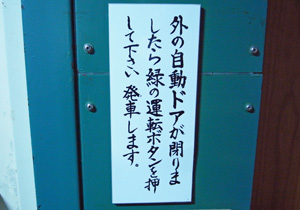 外の自動ドアが閉りま
したら緑の運転ボタンを押
して下さい 発車します。